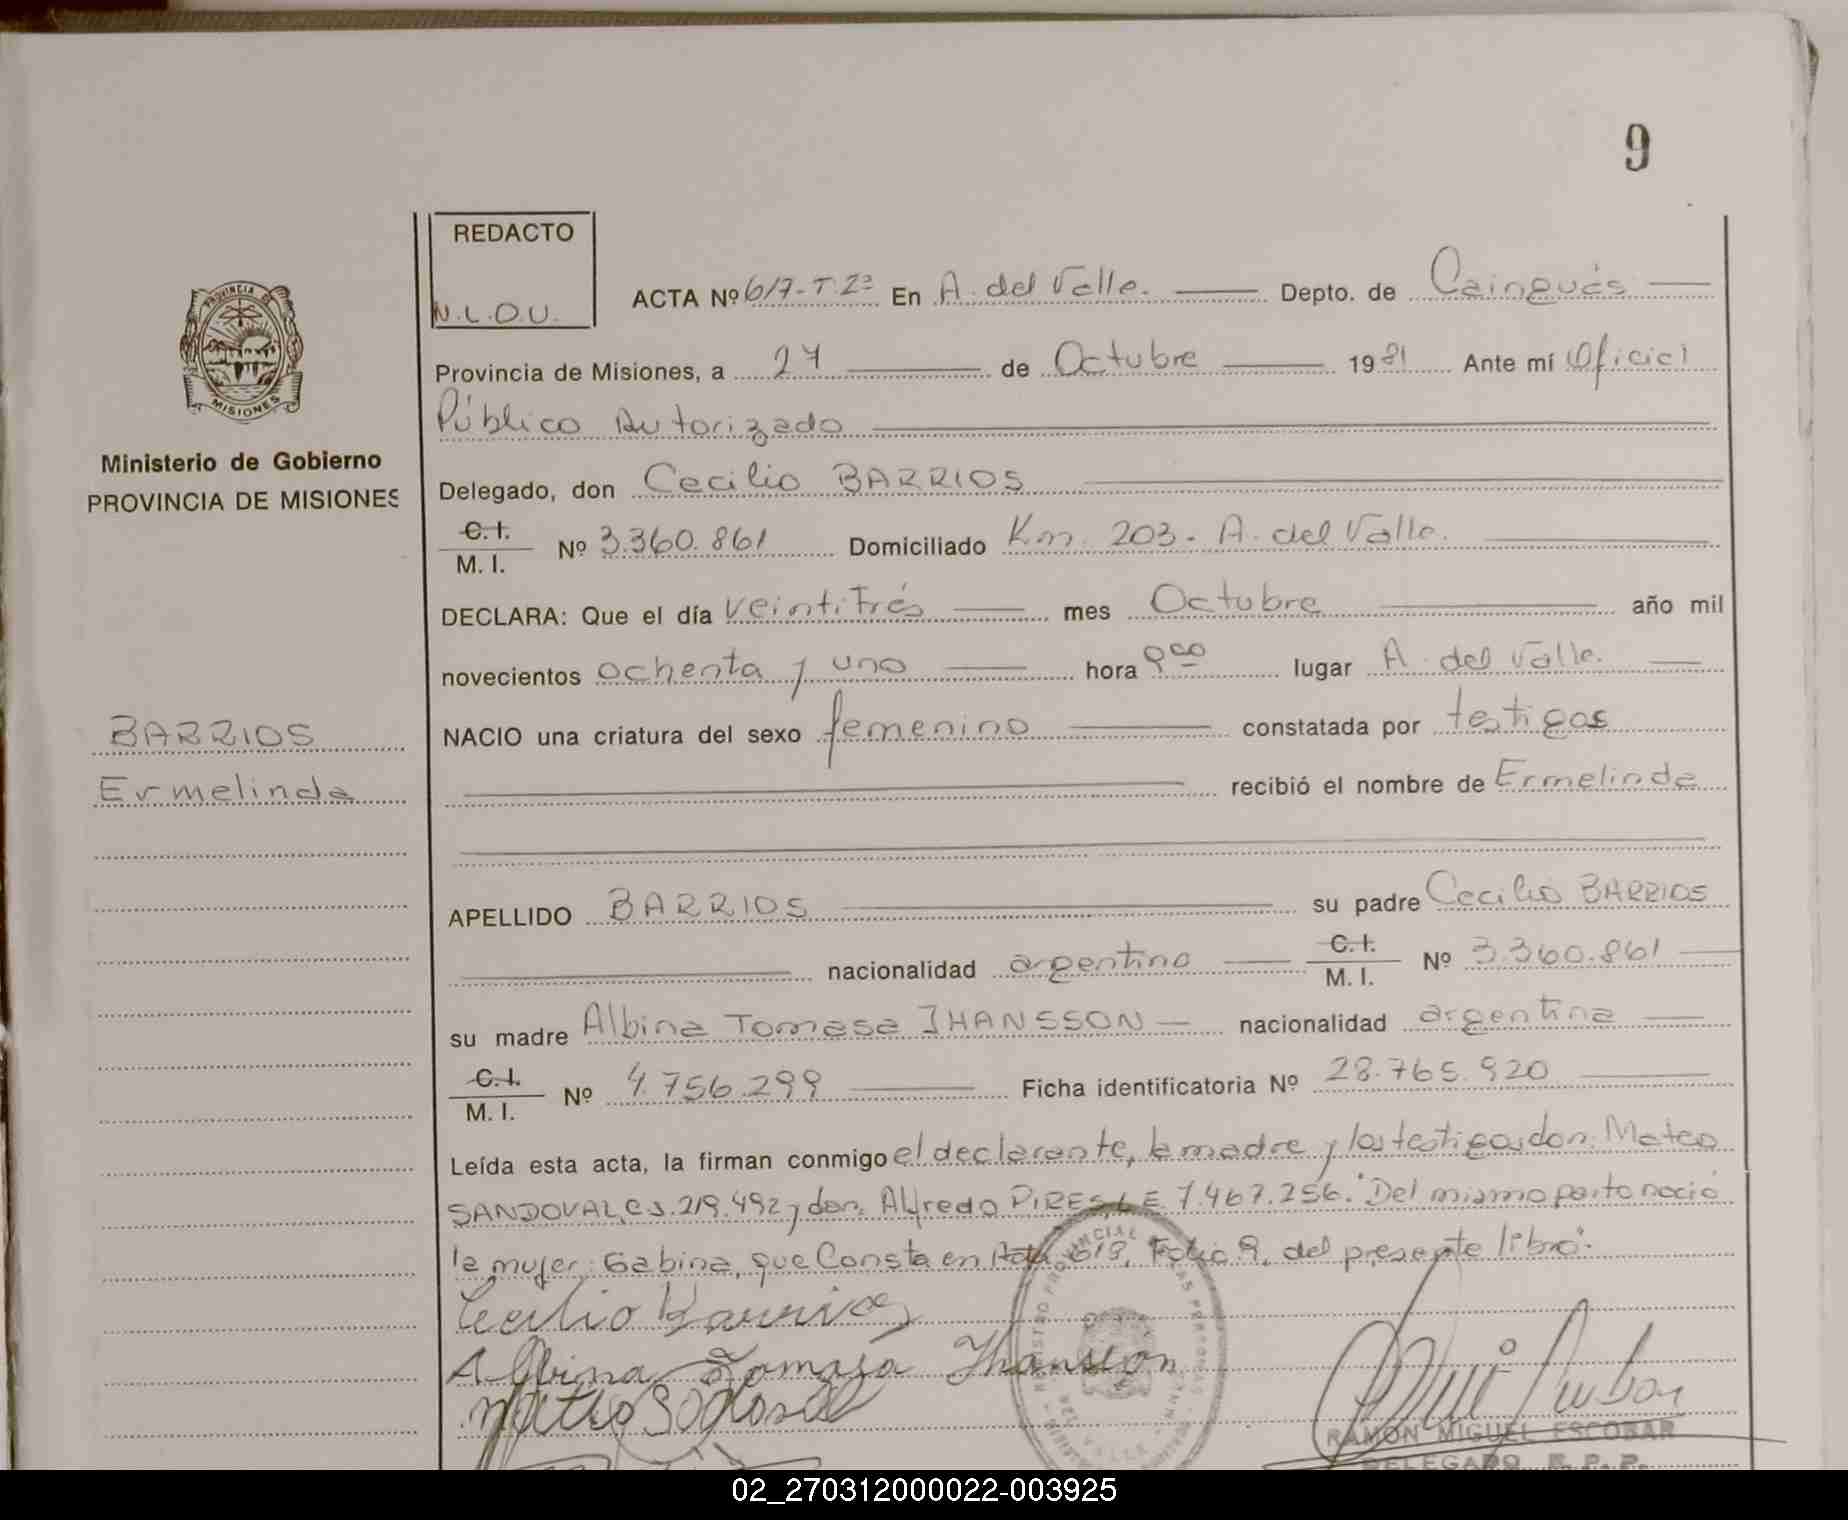 9
REDACTO
N.L.O.U.
ACTA Nº 617-T.2º En A. del Valle. Depto. de Cainguás
PROVINCIA DE
MISIONES
Provincia de Misiones, a 27 de Octubre 1981 Ante mí Oficial
Público Autorizado
Ministerio de Gobierno
PROVINCIA DE MISIONES
Delegado, don Cecilio BARRIOS
C.I. M.I. Nº 3.360.861 Domiciliado Km. 203. A. del Valle.
DECLARA: Que el día veintitrés mes Octubre año mil
novecientos ochenta y uno hora lugar A. del Valle.
NACIO una criatura del sexo femenino constatada por testigos
BARRIOS
Ermelinda
recibió el nombre de Ermelinda
APELLIDO BARRIOS su padre Cecilio BARRIOS
nacionalidad argentino C.I. M.I. Nº 3.360.861
su madre Albina Tomasa JHANSSON nacionalidad argentina
C.I. M.I. Nº 4.756.299 Ficha identificatoria Nº 28.765.920
Leída esta acta, la firman conmigo el declarante, la madre y los testigos don: Mateo
SANDOVAL, C.I. 219.492 y don: Alfredo PIRES, L.E 7.467.256. "Del mismo parto nació
la mujer: Gabina, que Consta en Acta 618, Folio 9, del presente libro".
Cecilio Barrios
Albina Tomasa Jhansson
Mateo
RAMON MIGUEL ESCOBAR
DELEGADO R. P. P.
02_270312000022-003925